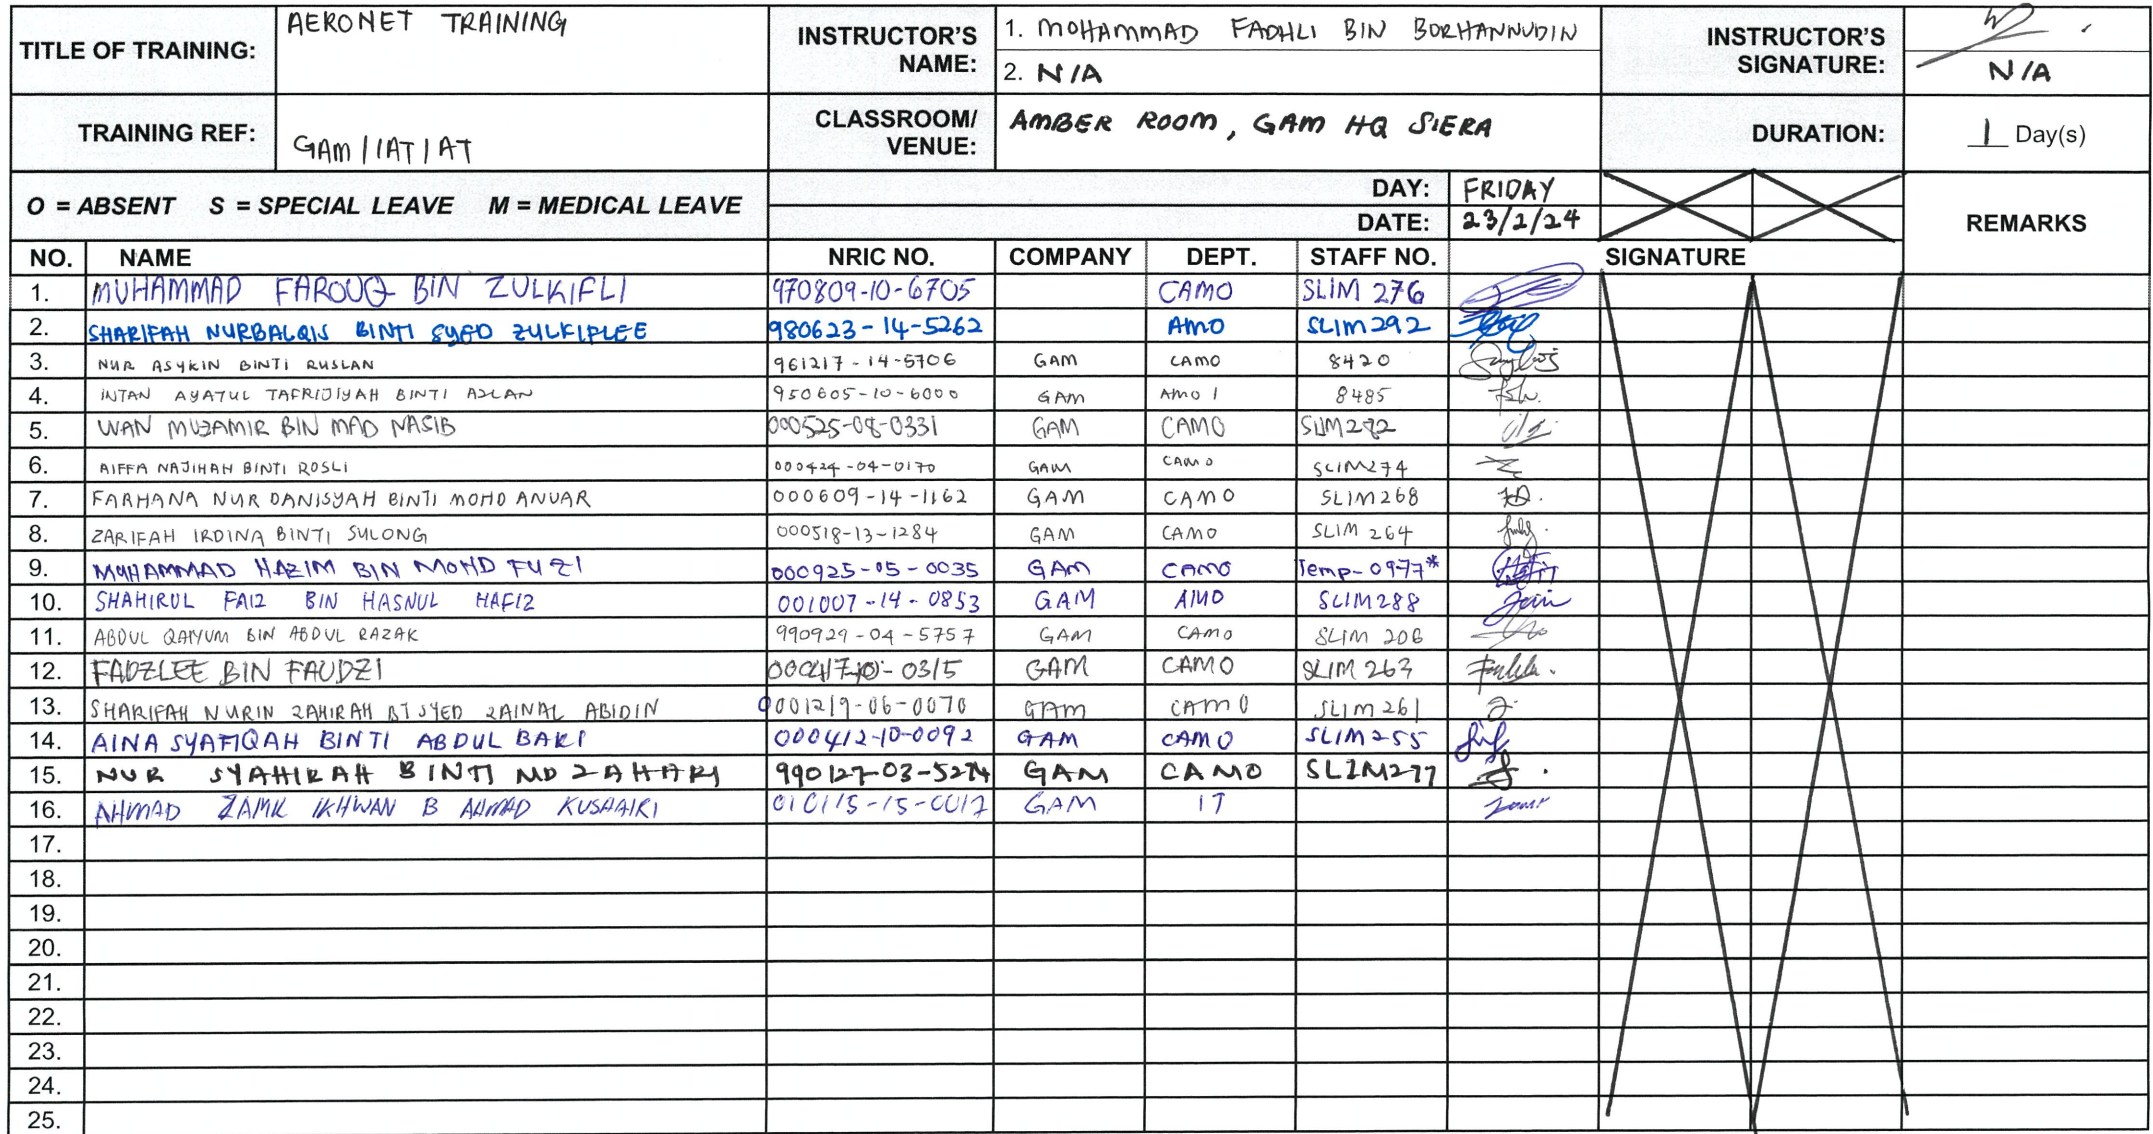 TITLE OF TRAINING: AERONET TRAINING INSTRUCTOR'S NAME: 1. MOHAMMAD FADHLI BIN BORHANNUDIN INSTRUCTOR'S SIGNATURE:
2. N/A N/A
TRAINING REF: GAM/IAT/AT CLASSROOM/ VENUE: AMBER ROOM, GAM HQ SIERA DURATION: 1 Day(s)
O = ABSENT S = SPECIAL LEAVE M = MEDICAL LEAVE DAY: FRIDAY
DATE: 23/2/24 REMARKS
NO. NAME NRIC NO. COMPANY DEPT. STAFF NO. SIGNATURE
1. MUHAMMAD FAROUQ BIN ZULKIFLI 970809-10-6705 CAMO SLIM 276
2. SHARIFAH NURBALQIS BINTI SYED ZULKIFLEE 980623-14-5262 AMO SLIM292
3. NUR ASYKIN BINTI RUSLAN 961217-14-5706 GAM CAMO 8420
4. INTAN AYATUL TAFRIDIYAH BINTI AZLAN 950605-10-6000 GAM AMO 1 8485
5. WAN MUZAMIR BIN MAD NASIB 000525-08-0331 GAM CAMO SLIM282
6. AIFFA NAJIHAH BINTI ROSLI 000424-04-0170 GAM CAMO SLIM274
7. FARHANA NUR DANISYAH BINTI MOHD ANUAR 000609-14-1162 GAM CAMO SLIM268
8. ZARIFAH IRDINA BINTI SULONG 000518-13-1284 GAM CAMO SLIM 264
9. MUHAMMAD HAZIM BIN MOHD FUZI 000925-05-0035 GAM CAMO Temp-0977*
10. SHAHIRUL FAIZ BIN HASNUL HAFIZ 001007-14-0853 GAM AMO SLIM288
11. ABDUL QAIYUM BIN ABDUL RAZAK 990929-04-5757 GAM CAMO SLIM 206
12. FADZLEE BIN FAUDZI GAM CAMO SLIM 263
13. SHARIFAH NURIN ZAHIRAH BT SYED ZAINAL ABIDIN 001219-06-0070 GAM CAMO SLIM261
14. AINA SYAFIQAH BINTI ABDUL BAKI 000412-10-0092 GAM CAMO SLIM255
15. NUR SYAHIRAH BINTI MD ZAHARI 990127-03-5274 GAM CAMO SLIM277
16. AHMAD ZAMK IKHWAN B AHMAD KUSHAIRI 010115-15-0017 GAM IT
17.
18.
19.
20.
21.
22.
23.
24.
25.